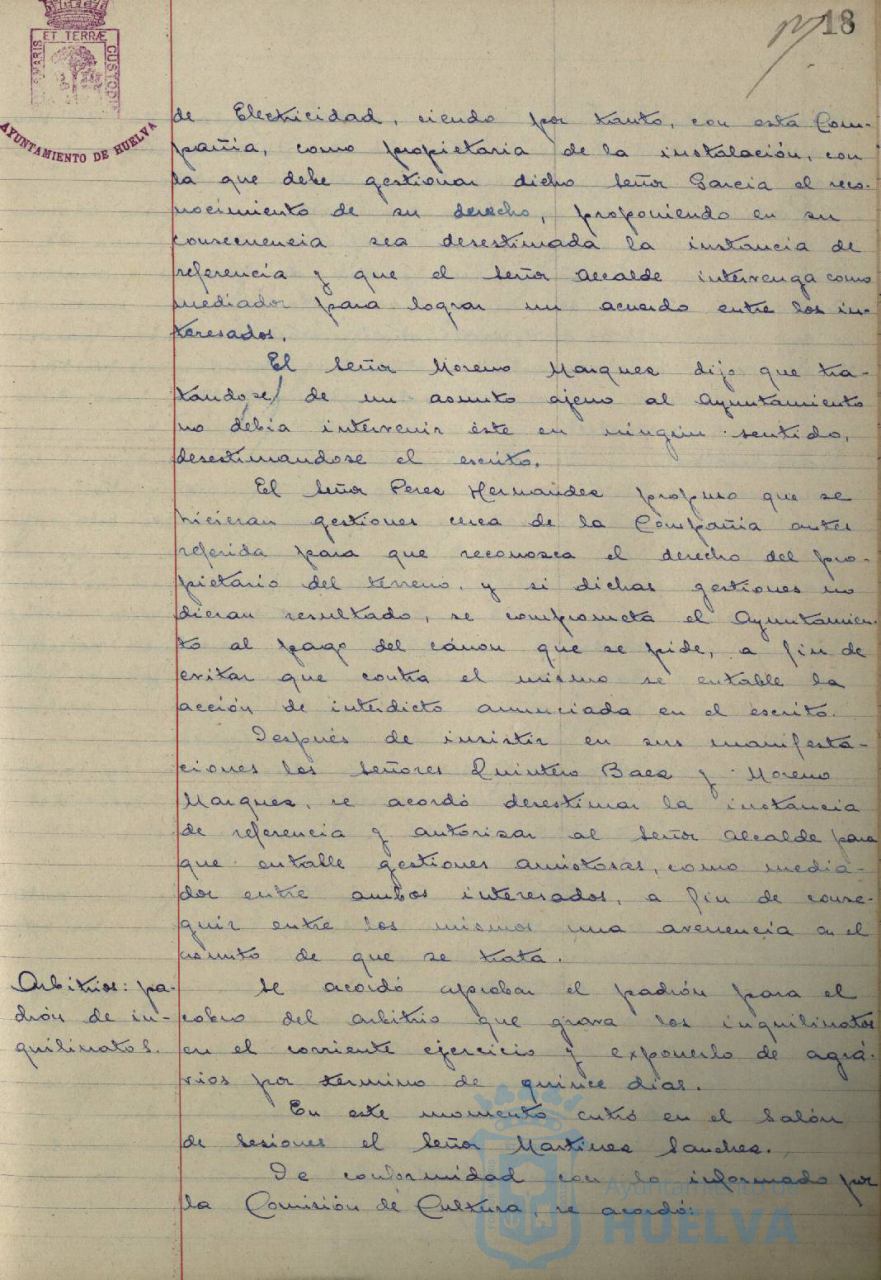 18
ET TERRÆ
MARIS CUSTODI
AYUNTAMIENTO DE HUELVA
de Electricidad, siendo por tanto, con esta Com-
pañia, como propietaria de la instalación, con
la que debe gestionar dicho Señor Garcia el reco-
nocimiento de su derecho, proponiendo en su
consecuencia sea desestimada la instancia de
referencia y que el Señor Alcalde intervenga como
mediador para lograr un acuerdo entre los in-
teresados.
El Señor Moreno Marques dijo que tra-
tandose de un asunto ajeno al Ayuntamiento
no debia intervenir éste en ningún sentido,
desestimandose el escrito.
El Señor Perez Hernandez propuso que se
hicieran gestiones cerca de la Compañia antes
referida para que reconozca el derecho del pro-
pietario del terreno, y si dichas gestiones no
dieran resultado, se comprometa el Ayuntamien-
to al pago del cánon que se pide, a fin de
evitar que contra el mismo se entable la
acción de interdicto anunciada en el escrito.
Después de insistir en sus manifesta-
ciones los Señores Quintero Baez y Moreno
Marquez, se acordó desestimar la instancia
de referencia y autorizar al Señor Alcalde para
que entable gestiones amistosas, como media-
dor entre ambos interesados, a fin de conse-
guir entre los mismos una avenencia en el
asunto de que se trata.
Arbitrios: pa-
drón de in-
quilinatos.
Se acordó aprobar el padrón para el
cobro del arbitrio que grava los inquilinatos
en el corriente ejercicio y exponerlo de agra-
vios por termino de quince dias.
En este momento entró en el Salón
de sesiones el Señor Martinez Sanchez.
De conformidad con lo informado por
la Comisión de Cultura, se acordó:
Ayuntamiento de
HUELVA